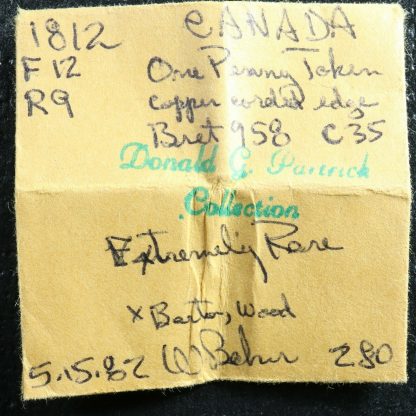 1812 CANADA
F12 One Penny Token
R9 copper corded edge
Bret 958 C35
Donald G. Partrick
Collection
Extremely Rare
x Barton, Wood
5.15.82 W Baker 280